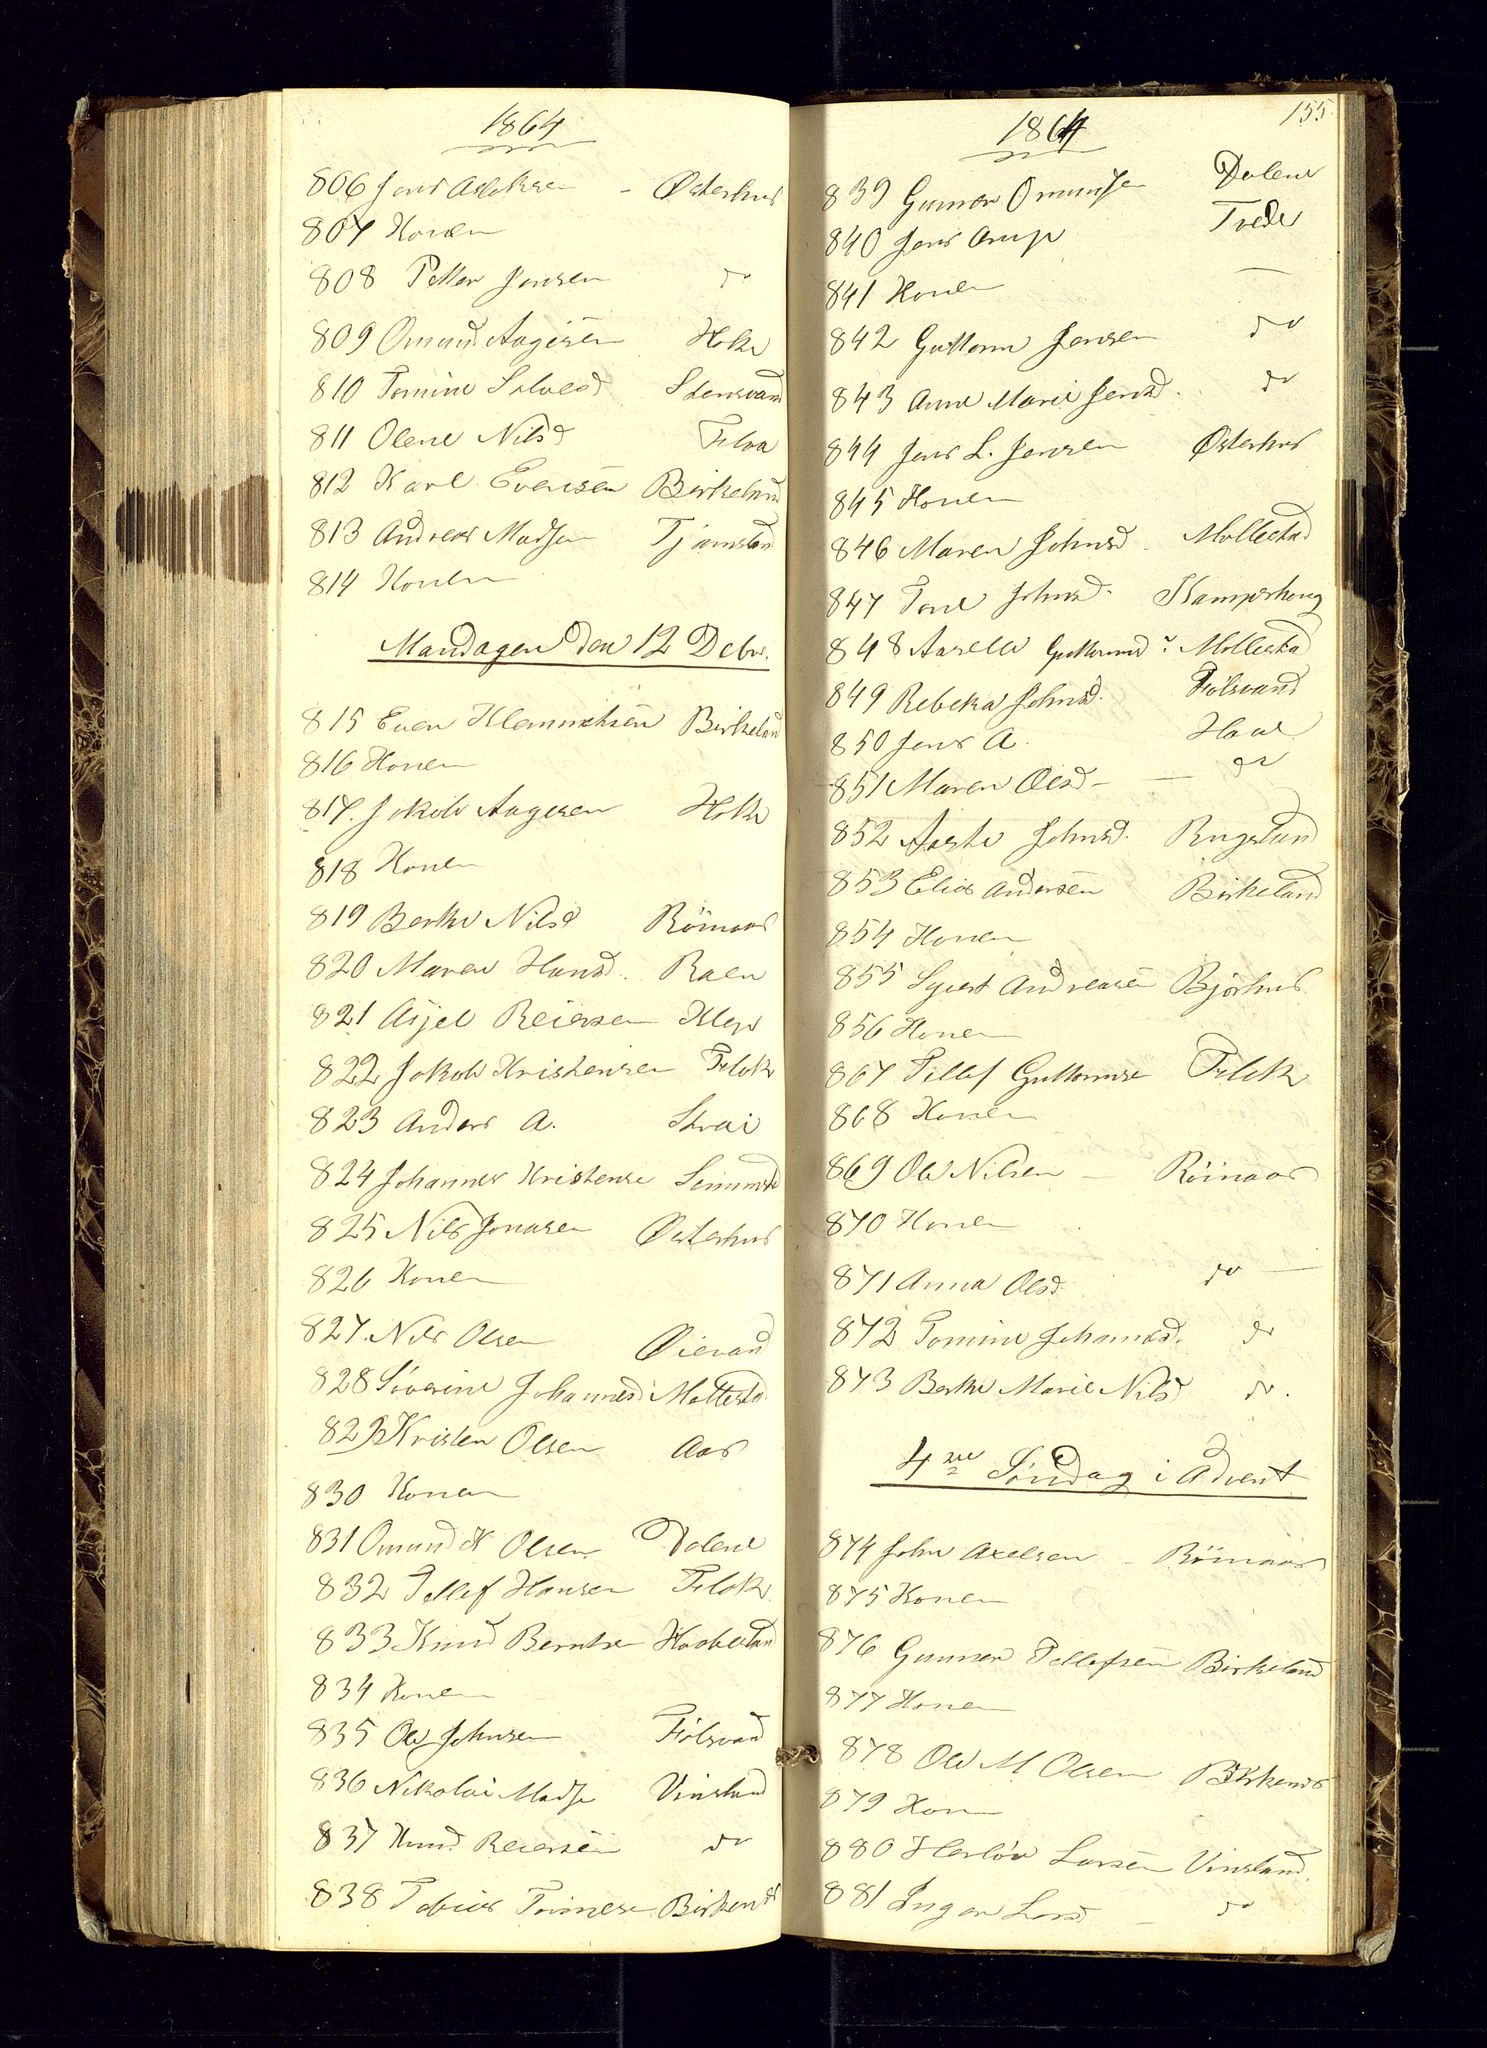 1864
806 Jens Aslaksen - Østerhus
807 Konen
808 Petter Jensen do
809 Omund Aagesen Hoke
810 Tomine Salvesd Stensvand
811 Olene Nilsd
812 Karl Evensen Birkeland
813 Andreas Madsen Tjomsland
814 Konen
Mandagen den 12 Debr.
815 Even Klemmetsen Birkeland
816 Konen
817. Jakob Aagesen Hoke
818 Konen
819 Berthe Nilsd Röinaas
820 Maren Hansd. Raen
821 Asjel Reiersen Klep
822 Jakob Kristensen Flak
823 Anders A. Strai
824 Johannes Kristense
825 Nils Jonasen Østerhus
826 Konen
827. Nils Olsen Øievand
828 Söverine Johannesd Mollestad
829 Kristen Olsen Aas
830 Konen
831 Omund K Olsen Dolene
832 Tellef Hansen Flak
833 Knud Berntsen Haabesland
834 Konen
835 Ole Johnsen Fiölsvand
836 Nikolai Madse Vinsland
837 Knud Reiersen do
838 Tobias Tomesen Birkenes
155
1864
839 Gunder Omundsen Dolene
840 Jens Arup Tvede
841 Konen
842 Guttorm Jensen do
843 Anne Marie Jensd. do
844 Jens L. Jensen Østerhus
845 Konen
846 Maren Johnsd Mollestad
847 Tone Johnsd. Kampeshoug
848 Aaselle Guttormsd Mollestad
849 Rebeka Johnsd. Fiölsvand
850 Jens A. Have
851 Maren Olsd - do
852 Aaste Johnsd. Rugsland
853 Elias Andersen Birkeland
854 Konen
855 Syvert Andreasen Bjorhus
856 Konen
867 Tellef Guttormse Flak
868 Konen
869 Ole Nilsen - Röinaas
870 Konen
871 Anna Olsd do
872 Tomine Johannesd. do
873 Berthe Marie Nilsd do.
4de Söndag i Advent
874 John Axelsen - Röinaas
875 Konen
876 Gunder Tellefsen Birkeland
877 Konen
878 Ole M Olsen Birkenes
879 Konen
880 Herlöv Larsen Vinsland
881 Inger Larsd - do